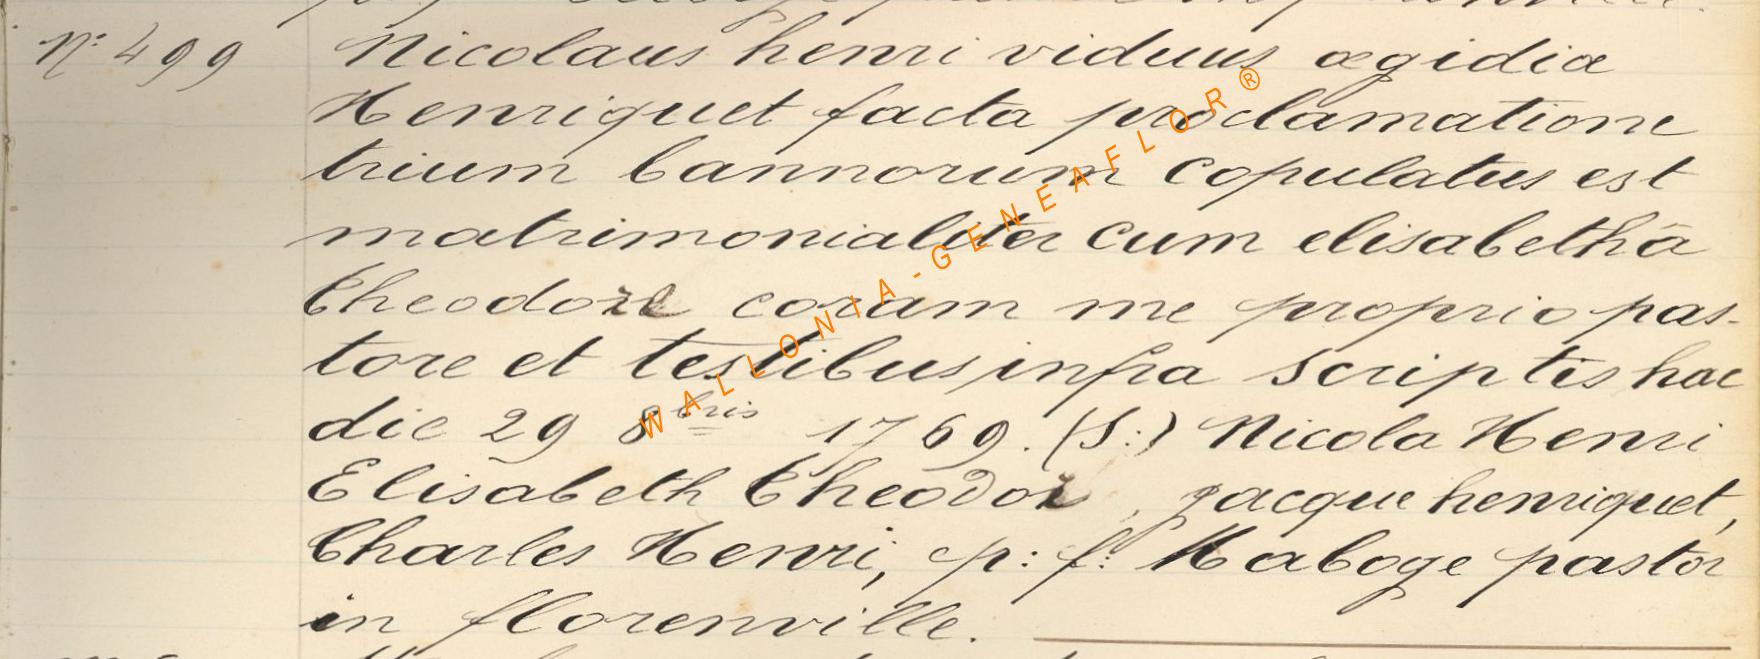 N° 499 Nicolaus henri viduus ægidiæ
Henriquet facta proclamatione
trium bannorum copulatus est
matrimonialiter cum elisabethâ
Theodore coram me proprio pas-
tore et testibus infra scriptis hac
die 29 8bris 1769. (S:) Nicola Henri
Elisabeth Theodor, jacque henriquet,
Charles Henri, p: f: Haboge pastor
in florenville.
WALLONIA-GENEAFLOR®